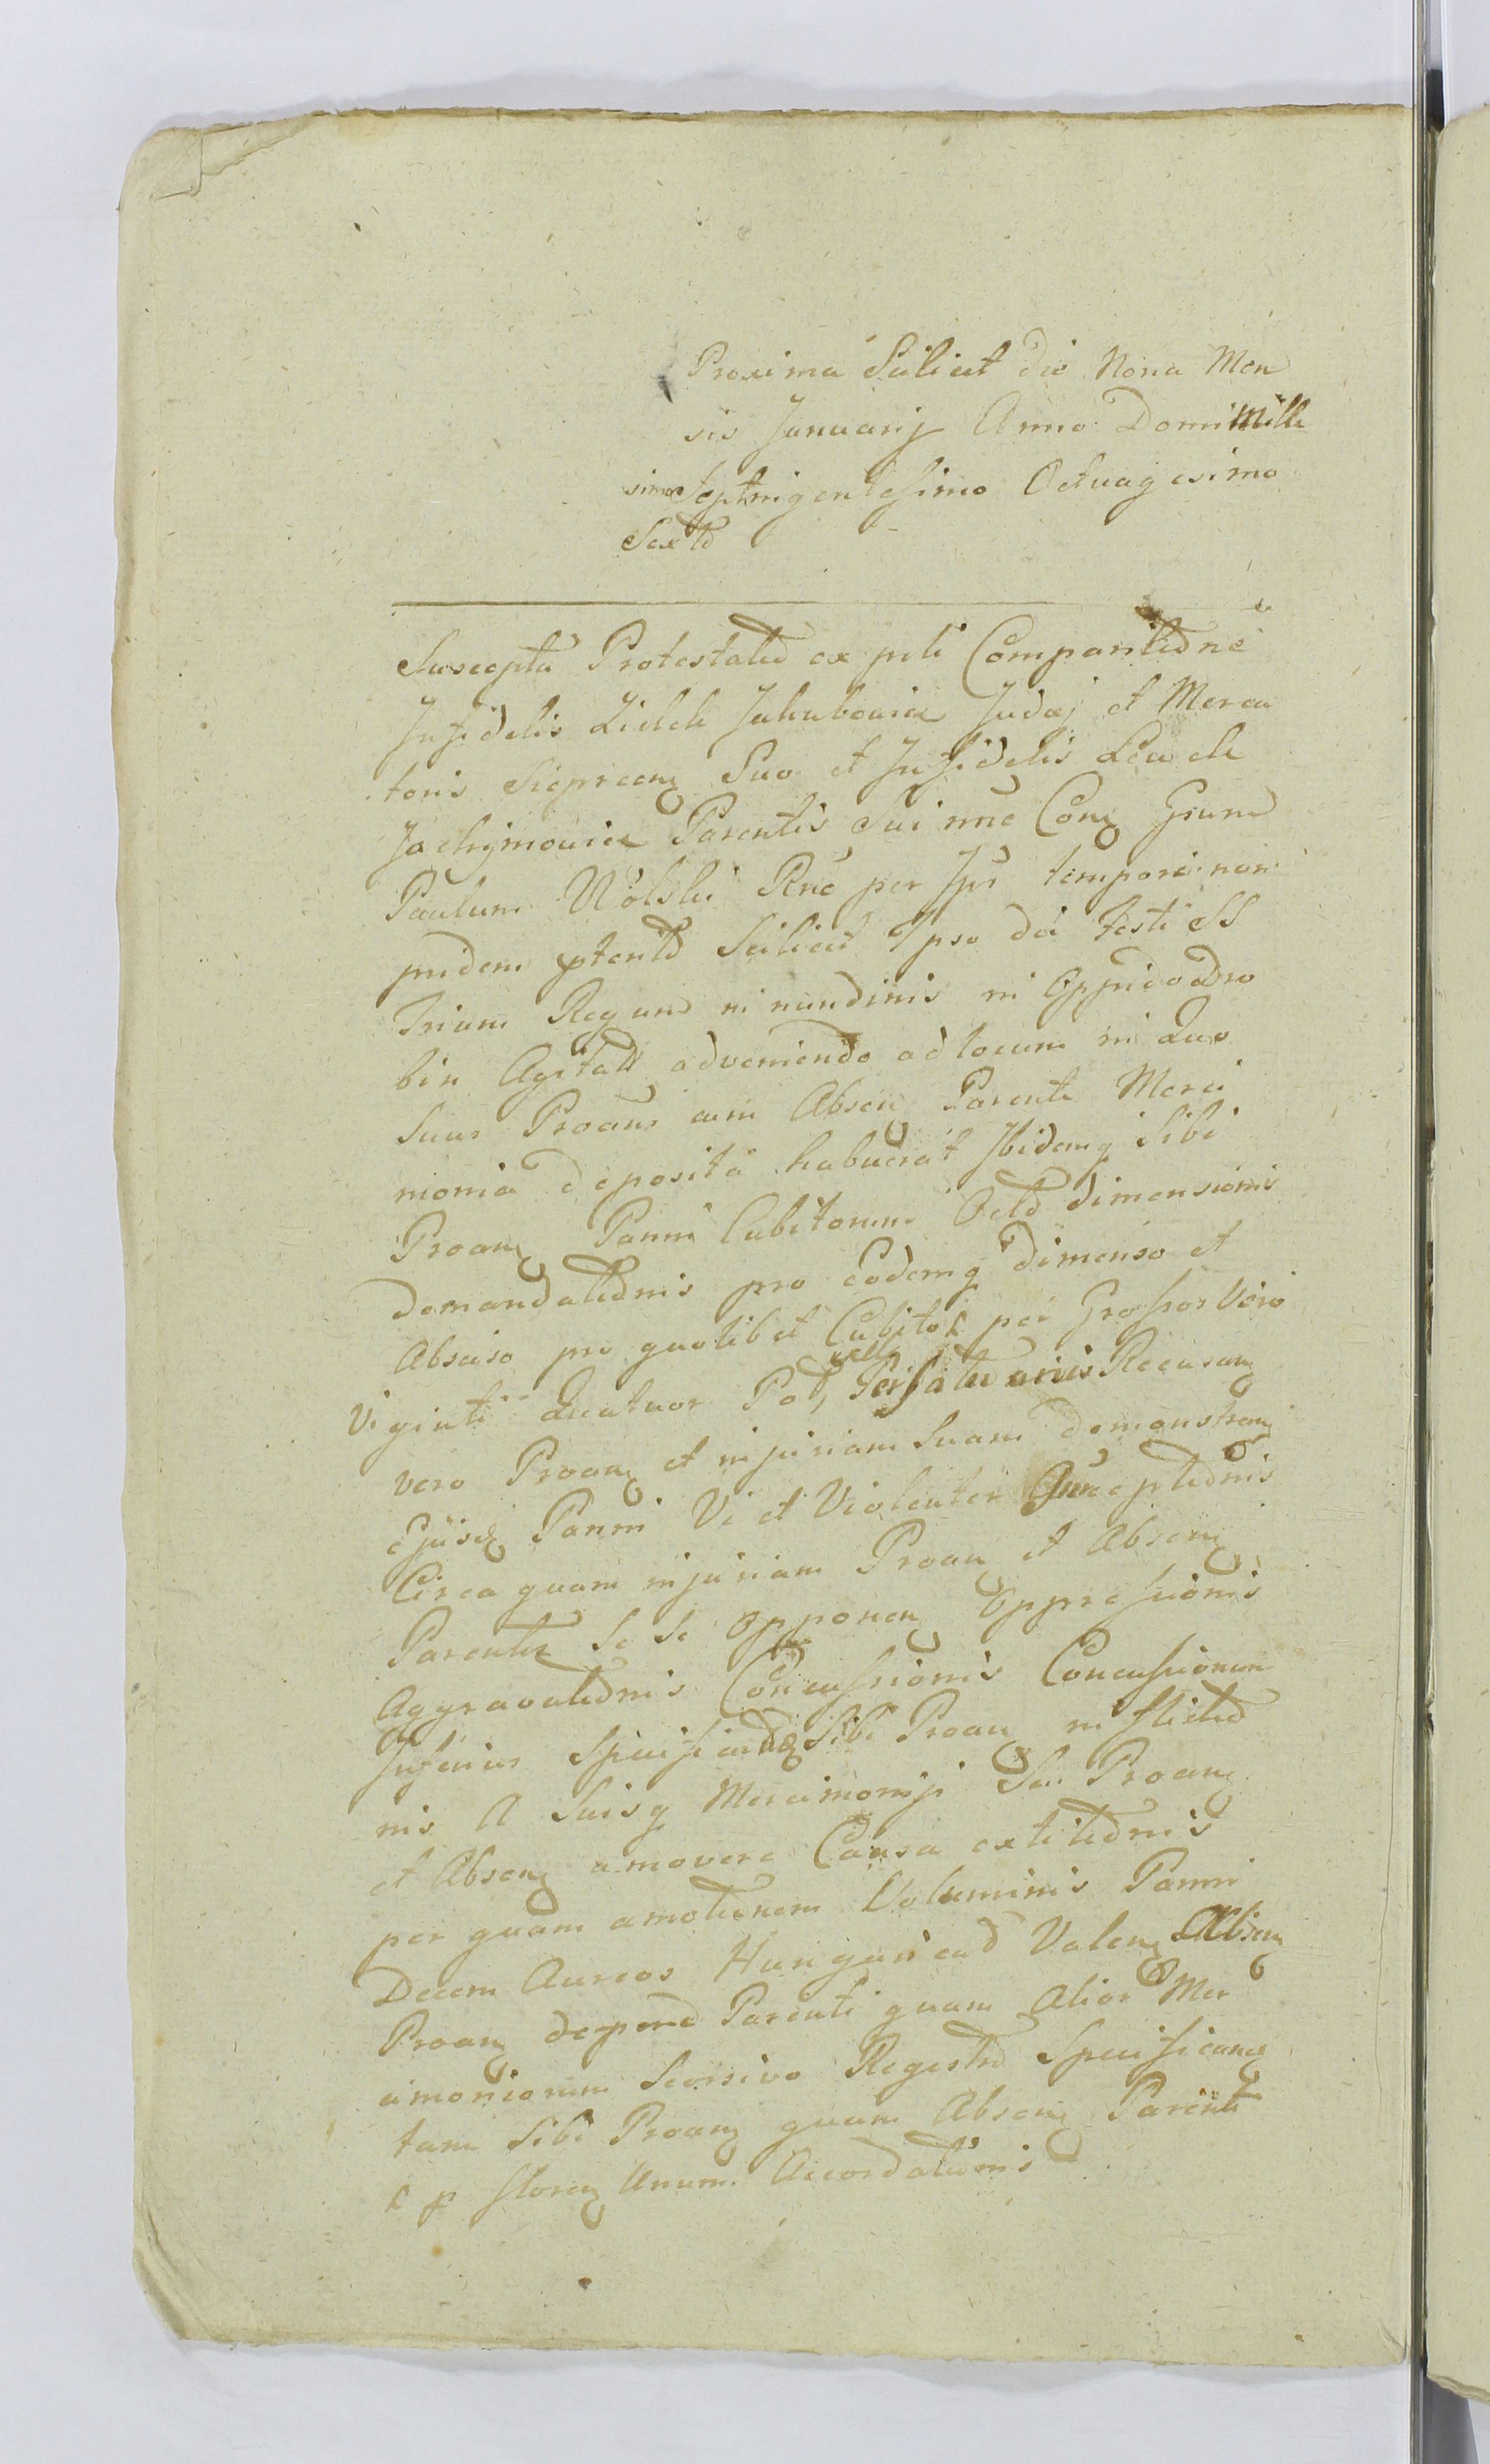 Proxima Scilicet die Nona Men
sis Januarij Anno Domi Mille
simo Septuigentesimo Octuagesimo
Sexto
Suscepta Protestatio ex psli Comparitione
Infidelis Lielek Jakubowicz Judaj et Merca
toris Sieprcen Suo et Infidelis Lewek
Jachymowicz Parentis Sui nne Con Grum
Paulum Wolski Rne per Ips tempore non
pridem pterito Scilicet Ipso die festi SS
Trium Regum in nundinis in Oppido Dro
bin Agitatt adveniendo ad locum in Quo
Suus Proans cum Absen Parente Merci
monia deposita habuerat Ibidemq Sibi
Proan Panni Cubitorum Octo dimensionis
demandationis pro eodemq dimenso et
Absciso pro quolibet Cubito per Grossos Vero
Viginti Quatuor Pol, velle Recusan
vero Proan et injuriam Suam demonstran
ejusd Panni Vi et Violenter
Circa quam injuriam Proan et Absen
Parente Se Se Opponen Oppressionis
Aggravationis Concussionis Concussionum
Inferius Specificand Sibi Proan inflictio
nis A Suisq Mercimonijs Sui Proan
et Absen amovere Causa extitionis
per quam amotionem Voluminis Panni
Decem Aureos Hungaricad Valen Absen
Proan deperd Parenti quam Alior Mer
cimoniorum Seorsivo Registro Specifican
tam Sibi Proan quam Absen Parenti
p floren Unum Accordationis